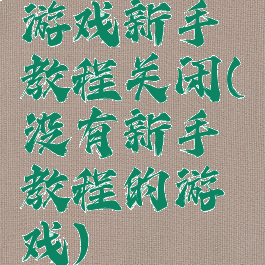 游戏新手
教程关闭(
没有新手
教程的游
戏)